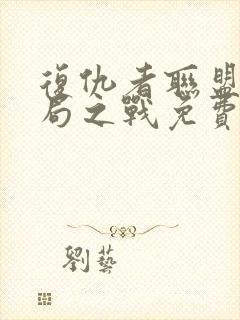 復仇者聯盟
局之戰免費
劉藝